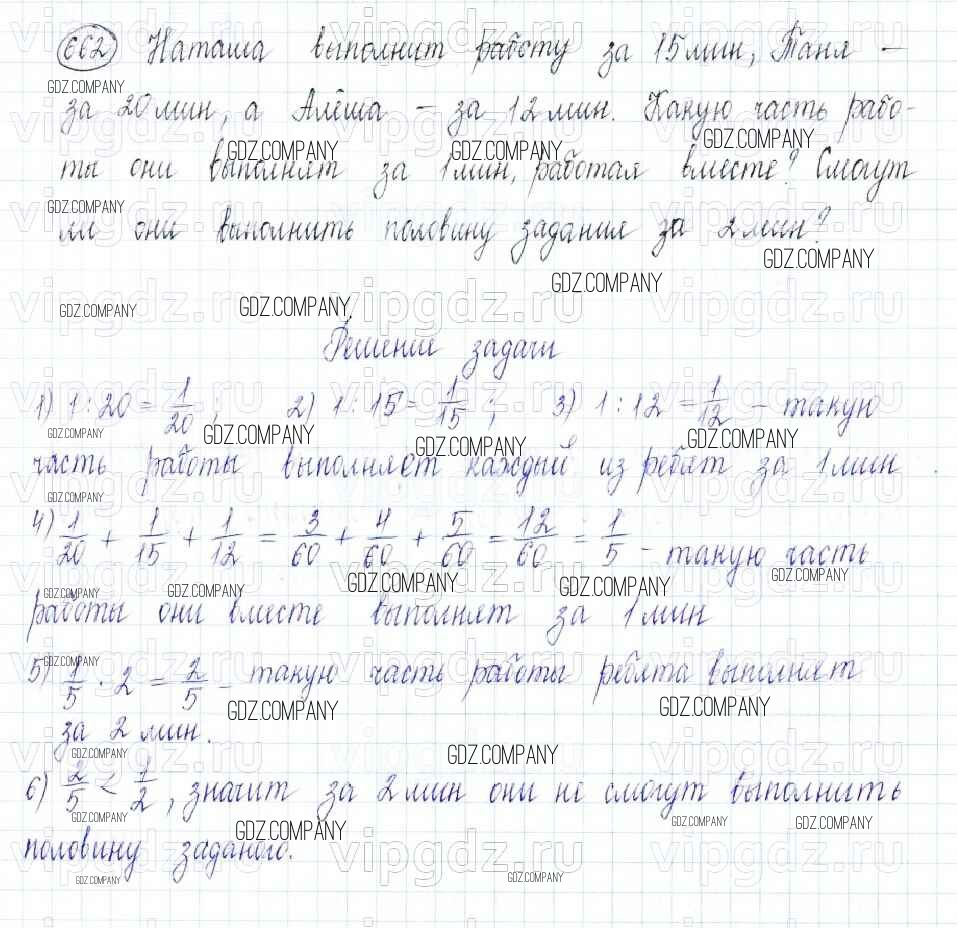 662 Наташа выполнит работу за 15 мин, Таня –
за 20 мин, а Алёша – за 12 мин. Какую часть рабо-
ты они выполнят за 1 мин, работая вместе? Смогут
ли они выполнить половину задания за 2 мин?
Решение задачи
1) 1 : 20 = 1/20 ; 2) 1 : 15 = 1/15 ; 3) 1 : 12 = 1/12 – такую
часть работы выполняет каждый из ребят за 1 мин.
4) 1/20 + 1/15 + 1/12 = 3/60 + 4/60 + 5/60 = 12/60 = 1/5 – такую часть
работы они вместе выполнят за 1 мин
5) 1/5 · 2 = 2/5 – такую часть работы ребята выполнят
за 2 мин.
6) 2/5 < 1/2, значит за 2 мин они не смогут выполнить
половину заданого.
GDZ.COMPANY
vipgdz.ru